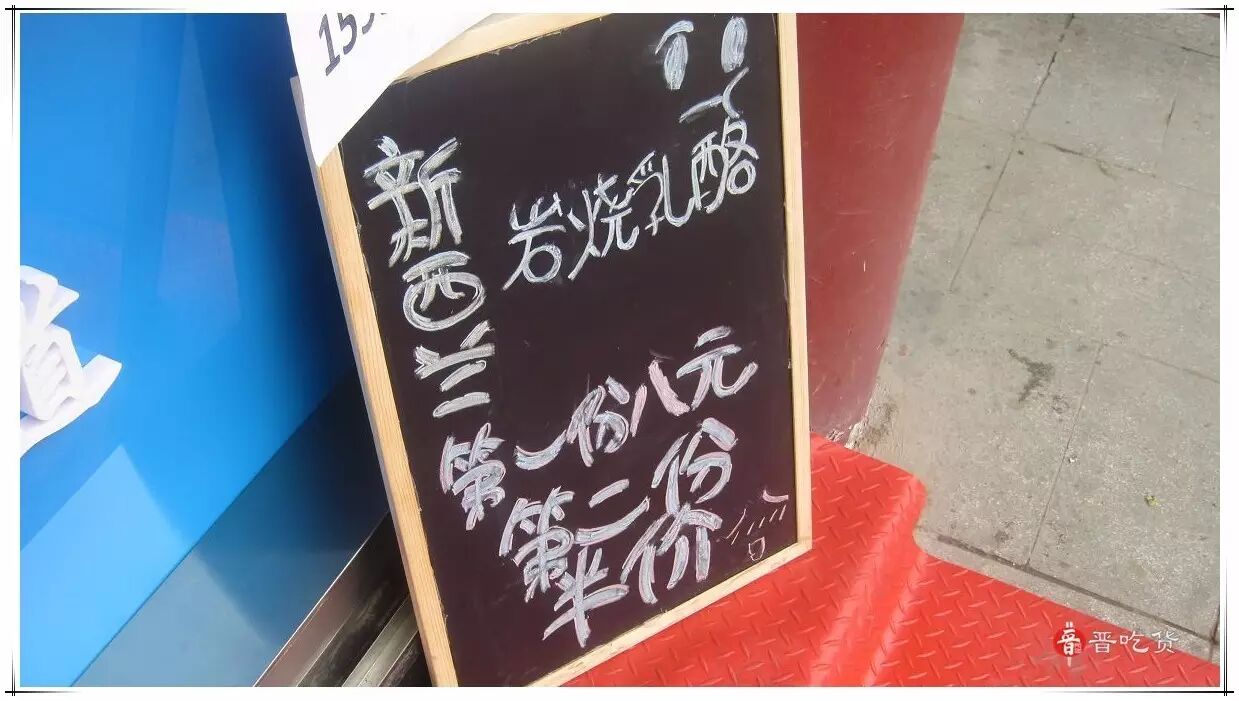 155
新西兰
岩烧乳酪
第一份八元
第二份
半价
晋吃货